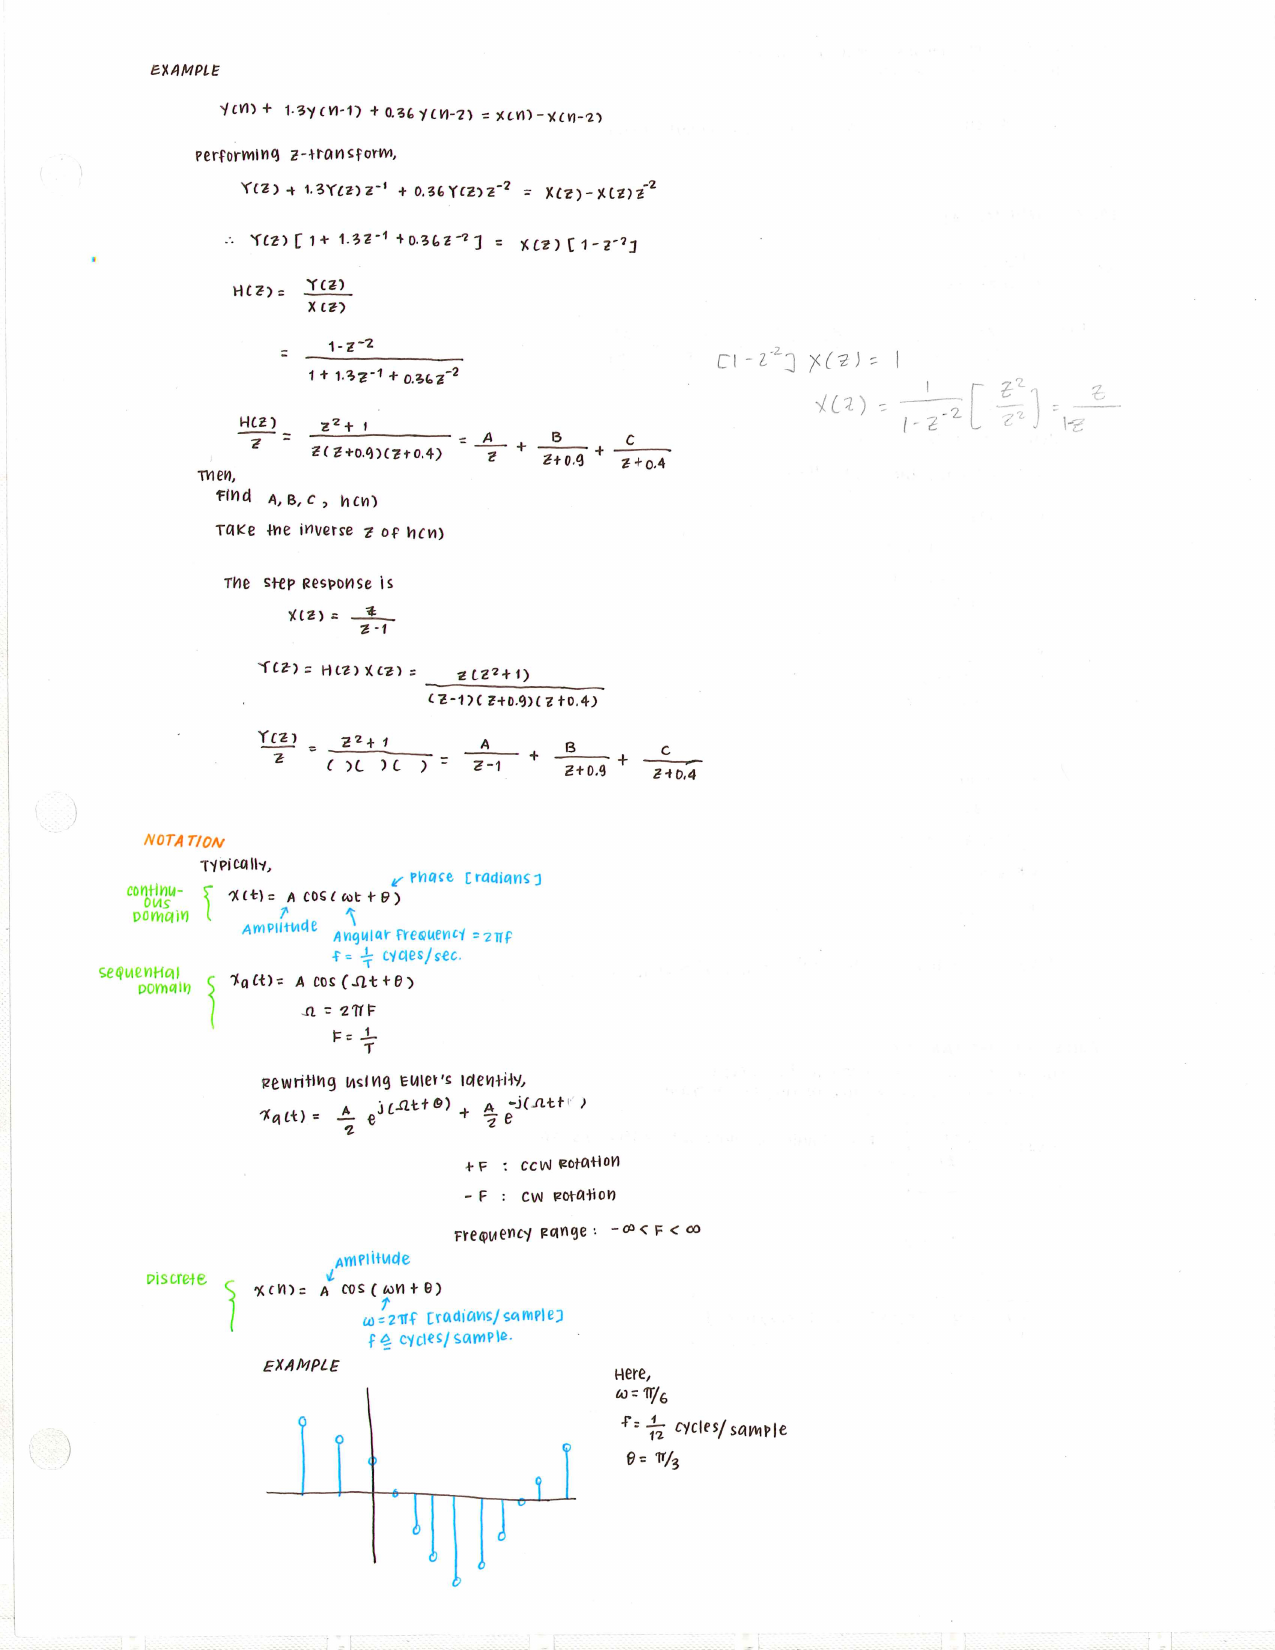 EXAMPLE
y(n) + 1.3y(n-1) + 0.36 y(n-2) = x(n) - x(n-2)
Performing z-transform,
Y(z) + 1.3Y(z)z⁻¹ + 0.36 Y(z)z⁻² = X(z) - X(z)z⁻²
∴ Y(z) [ 1 + 1.3z⁻¹ + 0.36z⁻² ] = X(z) [ 1 - z⁻² ]
H(z) = Y(z) / X(z)
= (1 - z⁻²) / (1 + 1.3z⁻¹ + 0.36z⁻²)
[1 - z⁻²] X(z) = 1
X(z) = 1 / (1 - z⁻²) [ z² / z² ] = z / (1-z)
H(z) / z = (z² + 1) / (z(z+0.9)(z+0.4)) = A / z + B / (z+0.9) + C / (z+0.4)
Then,
Find A, B, C, h(n)
Take the inverse z of h(n)
The step response is
X(z) = z / (z-1)
Y(z) = H(z) X(z) = z(z²+1) / ((z-1)(z+0.9)(z+0.4))
Y(z) / z = (z² + 1) / (( )( )( )) = A / (z-1) + B / (z+0.9) + C / (z+0.4)
NOTATION
Typically,
Phase [radians]
continu-
ous
Domain
x(t) = A cos(ωt + θ)
Amplitude
Angular Frequency = 2πf
f = 1/T cycles/sec.
sequential
Domain
xa(t) = A cos (Ωt + θ)
Ω = 2πF
F = 1/T
Rewriting using Euler's Identity,
xa(t) = A/2 e^j(Ωt+θ) + A/2 e^-j(Ωt+ )
+F : CCW Rotation
-F : CW Rotation
Frequency Range : -∞ < F < ∞
Amplitude
Discrete
x(n) = A cos (ωn + θ)
ω = 2πf [radians/sample]
f ≜ cycles/sample.
EXAMPLE
Here,
ω = π/6
f = 1/12 cycles/sample
θ = π/3